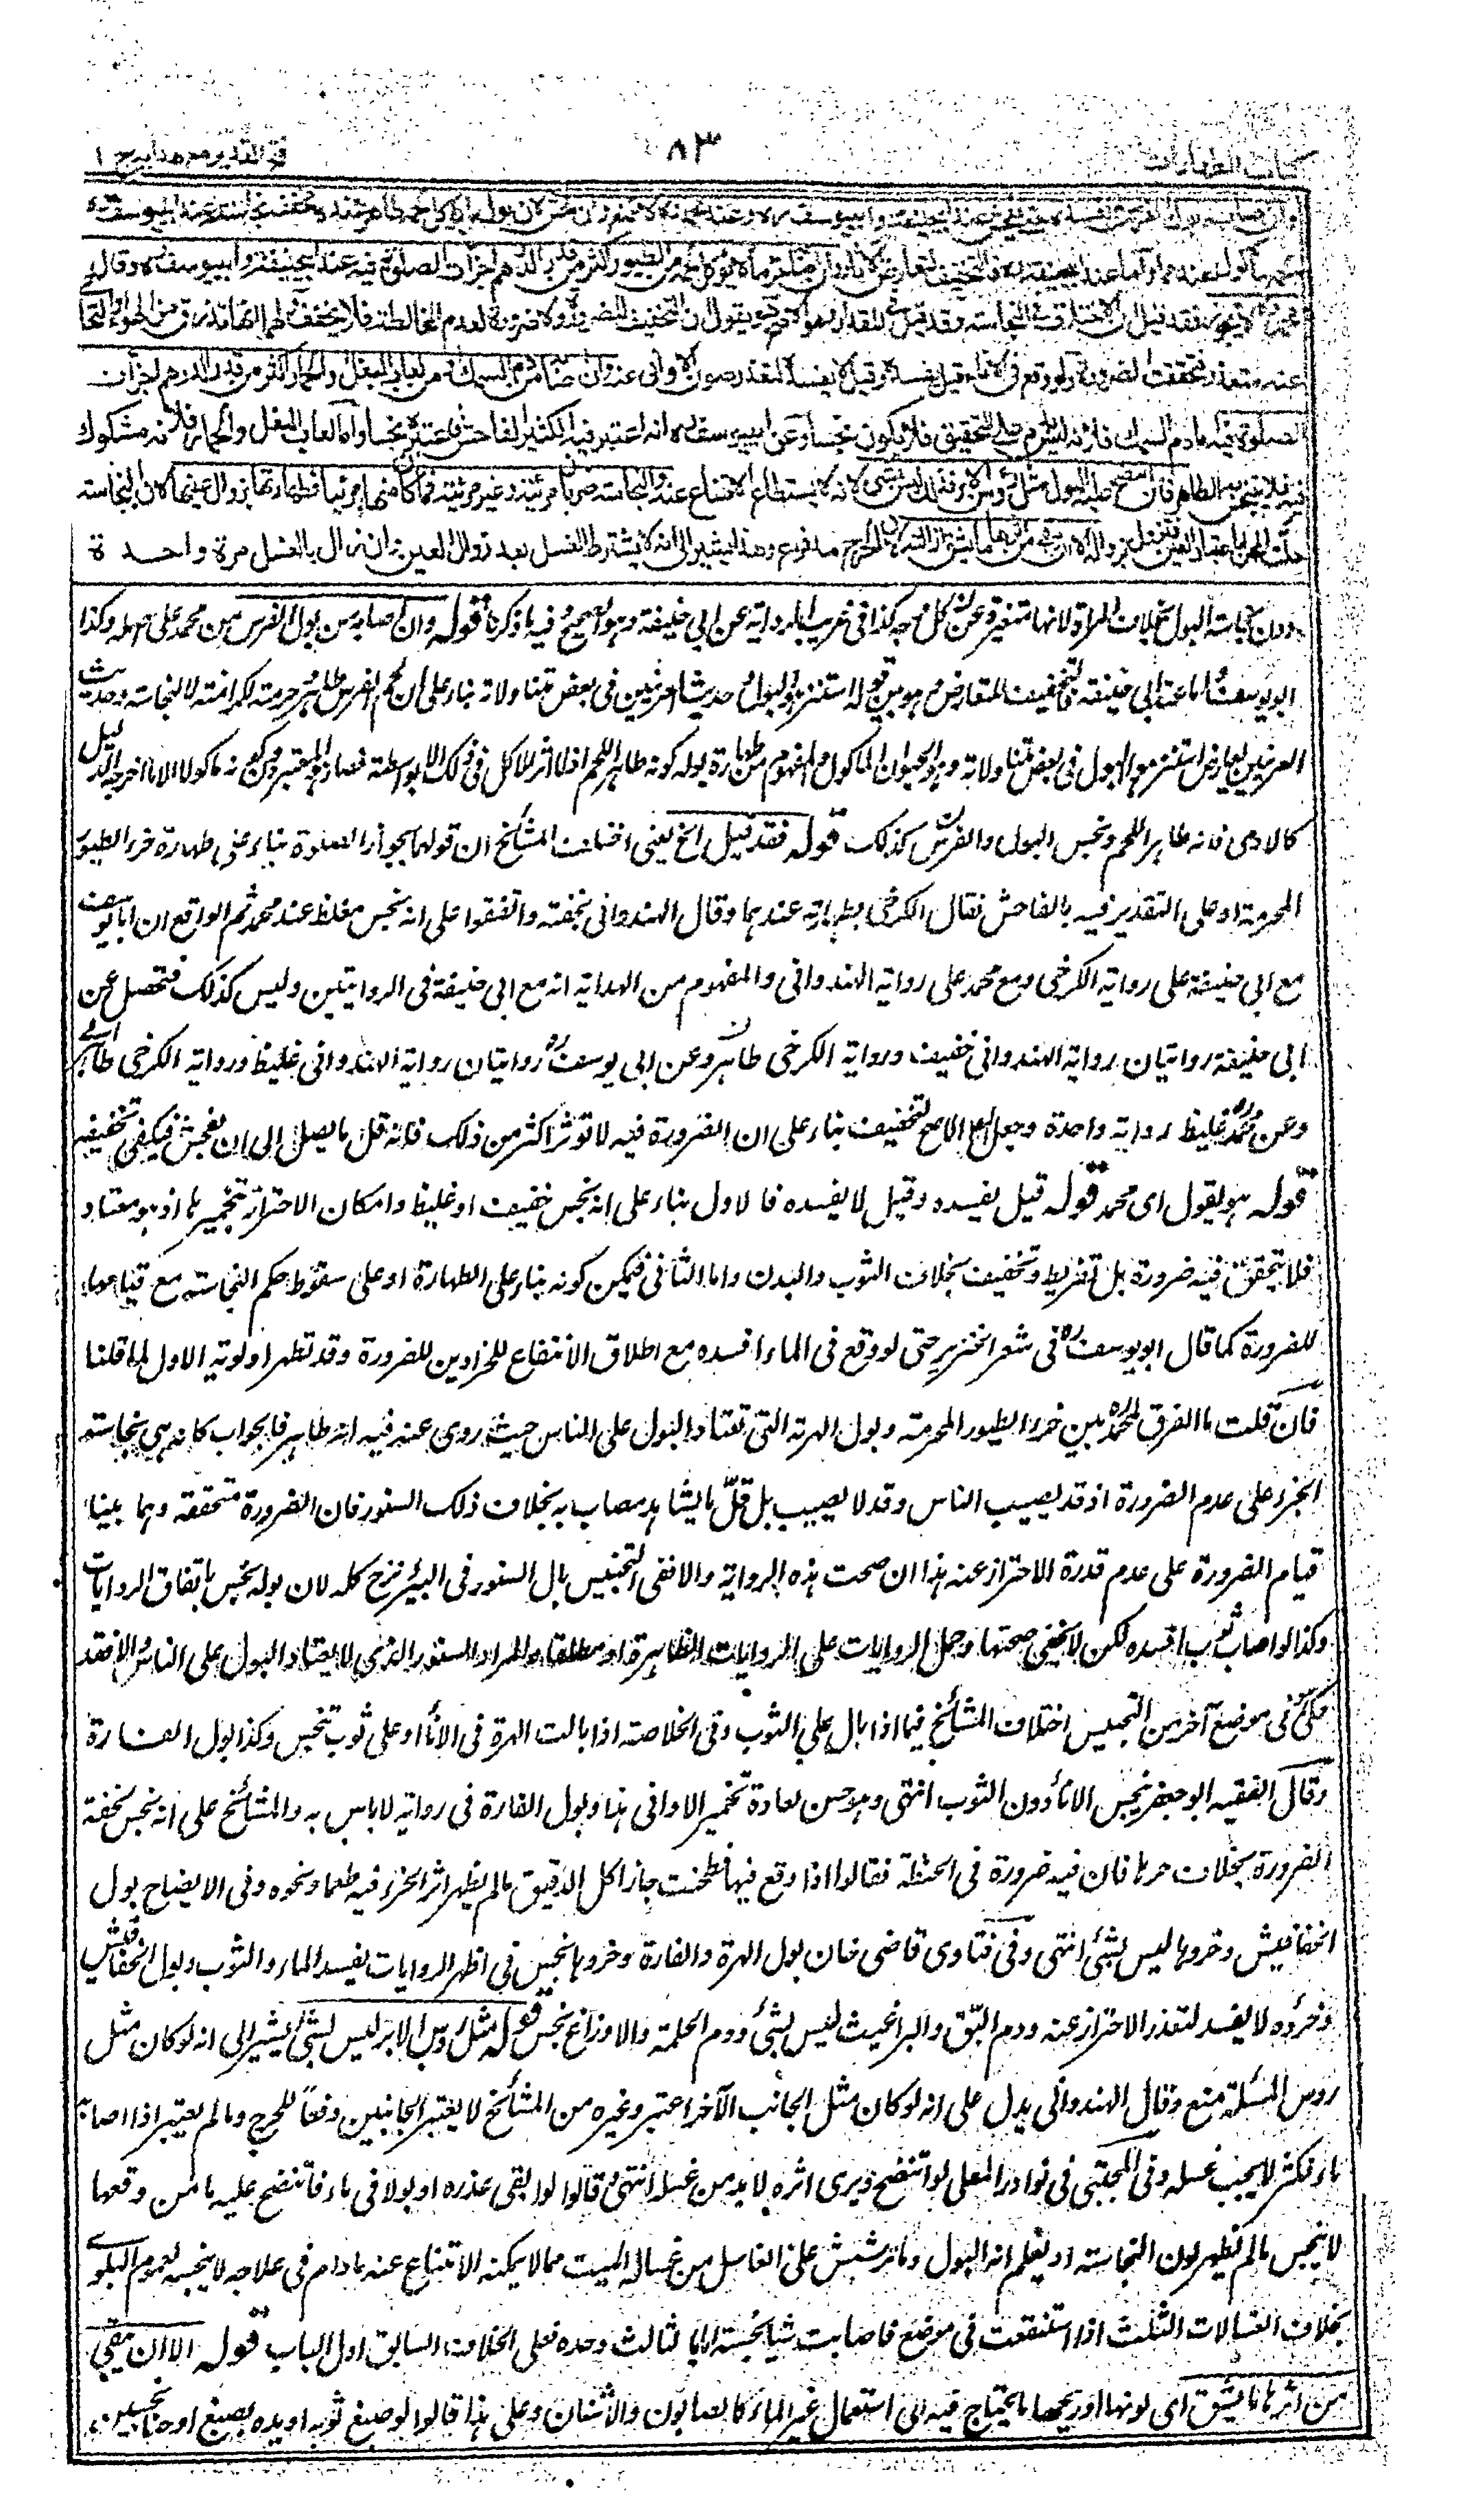 كتاب الطهارات
٨٣
فتح القدير مع هداية ج ١
وان اصابه بول الفرس لم يفسده حتى يفحش عند ابي حنيفة وابي يوسف ره وعند محمد ره لا يمنع وان فحش لان بول ما يؤكل لحمه طاهر عنده مخفف نجاسته عند ابي يوسف ره
لحمه ماكول عندهما واما عند ابي حنيفة ره فالتخفيف لتعارض الآثار وان اصابه خرء ما لا يؤكل لحمه من الطيور اكثر من قدر الدرهم اجزأت الصلوة فيه عند ابي حنيفة وابي يوسف ره وقال
محمد ره لا يجوز فقد قيل ان الاختلاف في النجاسة وقد قيل في المقدار وهو الاصح هو يقول ان التخفيف للضرورة ولا ضرورة لعدم المخالطة فلا يخفف ولهما انها تذرق من الهواء والتحامي
عنه متعذر فتحققت الضرورة ولو وقع في الاناء قيل يفسده وقيل لا يفسده لتعذر صون الاواني عنه وان اصابه من دم السمك او من لعاب البغل والحمار اكثر من قدر الدرهم اجزأت
الصلوة فيه اما دم السمك فلانه ليس بدم على التحقيق فلا يكون نجسا وعن ابي يوسف ره انه اعتبر فيه الكثير الفاحش فاعتبره نجسا واما لعاب البغل والحمار فلانه مشكوك
فيه فلا يتنجس به الطاهر فان انتضح عليه البول مثل رؤس الابر فذلك ليس بشئ لانه لا يستطاع الامتناع عنه والنجاسة ضربان مرئية وغير مرئية فما كان منها مرئيا فطهارتها بزوال عينها لان النجاسة
حلت المحل باعتبار العين فتزول بزواله الا ان يبقى من اثرها ما يشق ازالته لان الحرج مدفوع وهذا يشير الى انه لا يشترط الغسل بعد زوال العين وان زال بالغسل مرة واحدة
دون نجاسة البول بخلاف المرأة لانها متغيرة عن كل وجه كذا في غريب الرواية عن ابي حنيفة وهو الصحيح وفيه ما ذكرنا قوله وان اصابه من بول الفرس من محمد على اصله وكذا
ابو يوسف واما عند ابي حنيفة فالتخفيف للتعارض وهو بين قوله استنزهوا البول وحديث العرنيين في بعض متناولاته بناء على ان لحم الفرس طاهر حرمته لكرامته لا لنجاسته وحديث
العرنيين يعارض استنزهوا البول في بعض متناولاته وهو الحيوان الماكول والمفهوم من طهارة بوله كونه طاهر اللحم اذ لا اثر للاكل في ذلك الا بواسطته فصار هو المعتبر دون كونه ماكولا الا ما اخرجه الدليل
كالآدمي فانه طاهر اللحم ونجس البول والفرس كذلك قوله فقد قيل الخ يعني اختلف المشائخ ان قولهما بجواز الصلوة بناء على طهارة خرء الطيور
المحرمة او على التقدير فيه بالفاحش فقال الكرخي بطهارته عندهما وقال الهندواني بخفته واتفقوا على انه نجس مغلظ عند محمد ثم الواقع ان ابا يوسف
مع ابي حنيفة على رواية الكرخي ومع محمد على رواية الهندواني والمفهوم من الهداية انه مع ابي حنيفة في الروايتين وليس كذلك فتحصل عن
ابي حنيفة روايتان رواية الهندواني خفيف ورواية الكرخي طاهر وعن ابي يوسف ره روايتان رواية الهندواني غليظ ورواية الكرخي طاهر
وعن محمد ره غليظ رواية واحدة وجعل الاصح التخفيف بناء على ان الضرورة فيه لا توثر اكثر من ذلك فانه قل ما يصل الى ان يفحش فيكفي تخفيفه
قوله هو يقول اى محمد قوله قيل يفسده وقيل لا يفسده فالاول بناء على انه نجس خفيف او غليظ وامكان الاحتراز بتخميرها اذ هو معتاد
فلا يتحقق فيه ضرورة بل تفريط وتخفيف بخلاف الثوب والبدن واما الثاني فيمكن كونه بناء على الطهارة او على سقوط حكم النجاسة مع قيامها
للضرورة كما قال ابو يوسف ره في شعر الخنزير حتى لو وقع في الماء افسده مع اطلاق الانتفاع للخرازين للضرورة وقد تظهر اولوية الاول لما قلنا
فان قلت ما الفرق لمحمد ره بين خرء الطيور المحرمة وبول الهرة التي تعتاد البول على الناس حيث روى عنه فيه انه طاهر فالجواب كانه بنى نجاسة
الخرء على عدم الضرورة اذ قد يصيب الناس وقد لا يصيب بل قلّ ما يشاهد مصاب به بخلاف ذلك السنور فان الضرورة متحققة وهما بنيا
قيام الضرورة على عدم قدرة الاحتراز عنه هذا ان صحت هذه الرواية والا ففي التجنيس بال السنور في البئر نزح كله لان بوله نجس باتفاق الروايات
وكذا لو اصاب الثوب افسده لكن لا يخفى صحتها وحمل الروايات على الروايات الظاهرة او مطلقا والمراد السنور الذي لا يعتاد البول على الناس والا فقد
حكى في موضع آخر من التجنيس اختلاف المشائخ فيما اذا بال على الثوب وفي الخلاصة اذا بالت الهرة في الاناء او على ثوب تنجس وكذا بول الفارة
وقال الفقيه ابو جعفر ينجس الاناء دون الثوب انتهى وهو حسن لعادة تخمير الاواني هذا وبول الفارة في رواية لا باس به والمشائخ على انه نجس لخفة
الضرورة بخلاف خرئها فان فيه ضرورة في الحنطة فقالوا اذا وقع فيها فطحنت جاز اكل الدقيق ما لم يظهر اثر الخرء فيه طعما ونحوه وفي الايضاح بول
الخفافيش وخروها ليس بشئ انتهى وفي فتاوى قاضي خان بول الهرة والفارة وخروهما نجس في اظهر الروايات يفسد الماء والثوب وبول الخفافيش
وخرؤه لا يفسد لتعذر الاحتراز عنه ودم البق والبراغيث ليس بشئ ودم الحلمة والاوزاغ نجس قوله مثل رؤس الابر ليس بشئ يشير الى انه لو كان مثل
رؤس المسلة منع وقال الهندواني يدل على انه لو كان مثل الجانب الآخر اعتبر وغيره من المشائخ لا يعتبر الجانبين دفعا للحرج وما لم يعتبر اذا اصابه
ماء فكثر لا يجب غسله وفي المجتبى في نوادر المعلى لو انتضح ويرى اثره لا بد من غسله انتهى قالوا لو القى عذرة او بولا في ماء فانتضح عليه ماء من وقعها
لا ينجس ما لم يظهر لون النجاسة او يعلم انه البول وما ترشش على الغاسل من غسالة الميت مما لا يمكنه الامتناع عنه ما دام في علاجه لا ينجسه لعموم البلوى
بخلاف الغسالات الثلث اذا استنقعت في موضع فاصابت شيئا نجسته اما الثالث وحده فعلى الخلاف السابق اول الباب قوله الا ان يبقى
من اثرها ما يشق اى لونها او ريحها ما يحتاج فيه الى استعمال غير الماء كالصابون والاشنان وعلى هذا قالوا لو صبغ ثوبه او يده بصبغ او حناء نجسين